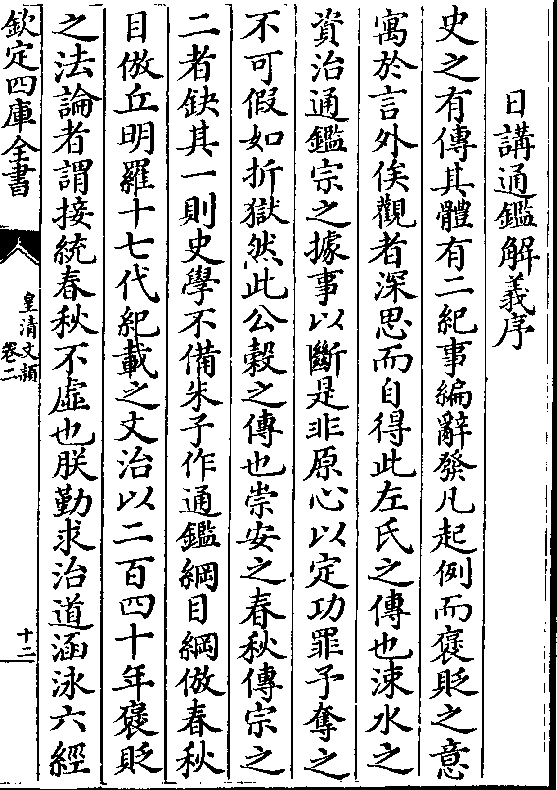 日講通鑑解義序
史之有傳其體有二紀事編辭發凡起例而褒貶之意
寓於言外俟觀者深思而自得此左氏之傳也涑水之
資治通鑑宗之據事以斷是非原心以定功罪予奪之
不可假如折獄然此公穀之傳也崇安之春秋傳宗之
二者缺其一則史學不備朱子作通鑑綱目綱倣春秋
目倣丘明羅十七代紀載之文治以二百四十年褒貶
之法論者謂接統春秋不虛也朕勤求治道涵泳六經
欽定四庫全書
皇清文頴
卷二
十二